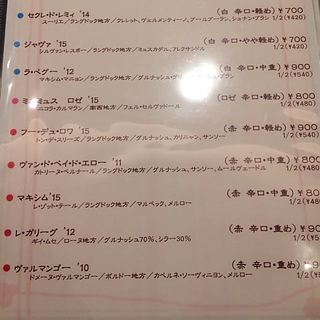 セクレ・ド・レミィ '14 (白 辛口・軽め) ¥700
スーリエ／ラングドック地方／クレット、ヴェルメンティーノ、ブールブーラン、ショナン・ブラン 1/2(¥420)
ジャヴァ '15 (白 辛口・やや軽め) ¥700
シルヴァン・レスポー／ラングドック地方／ミュスカデル、アレクサンドル 1/2(¥420)
ラ・ペグー '12 (白 辛口・中重) ¥900
マキシム・マニョン／ラングドック地方／グルナッシュ 1/2(¥540
ロゼ '15 (ロゼ 辛口・軽め) ¥800
ニコラ・カルマラン／南西地方／フェル・セルヴァドール 1/2(¥480
フー・デュ・ロワ '15 (赤 辛口・軽め) ¥900
トン・デ・スリーズ／ラングドック地方／グルナッシュ、カリニャン、サンソー 1/2(¥540
ヴァン・ド・ペイ・ド・エロー '11 (赤 辛口・中重) ¥80
カトリーヌ・ベルナール／ラングドック地方／グルナッシュ、サンソー、ムールヴェードル 1/2(¥480
マキシム '15 (赤 辛口・中重) ¥80
レ・ゾット・テール／ラングドック地方／マルベック、メルロー 1/2(¥48
レ・ガリーグ '12 (赤 辛口・重め) ¥90
ギィ・ムセ／ローヌ地方／グルナッシュ70%、シラー30% 1/2(¥5
ヴァルマンゴー '10 (赤 辛口・重め) ¥9
ドメーヌ・ヴァルマンゴー／ボルドー地方／カベルネ・ソーヴィニヨン、メルロー 1/2(